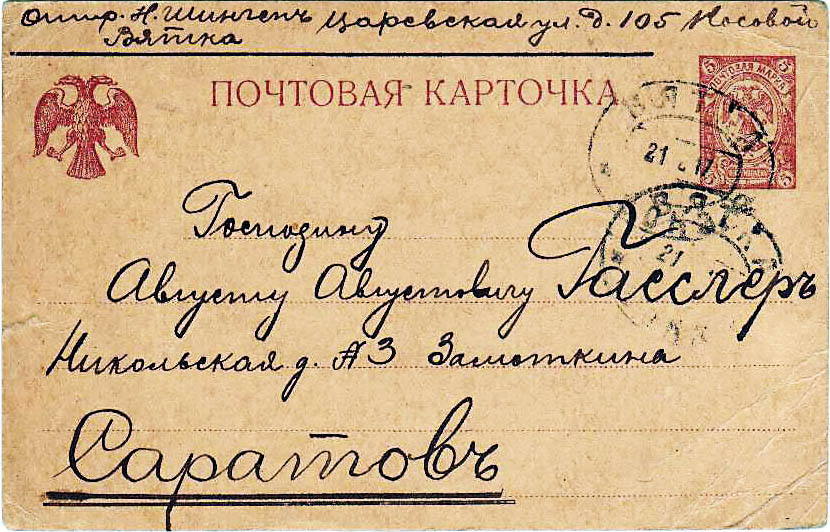 Отпр. Н. Шингепъ Царевская ул. д. 105 Носовой
Вятка
ПОЧТОВАЯ КАРТОЧКА
5 ПОЧТОВАЯ МАРКА 5
5 5
ВЯТКА
21 17
ВЯТКА
21
Господину
Августу Августовичу Гасслеръ
Никольская д. АЗ Замоткина
Саратовъ